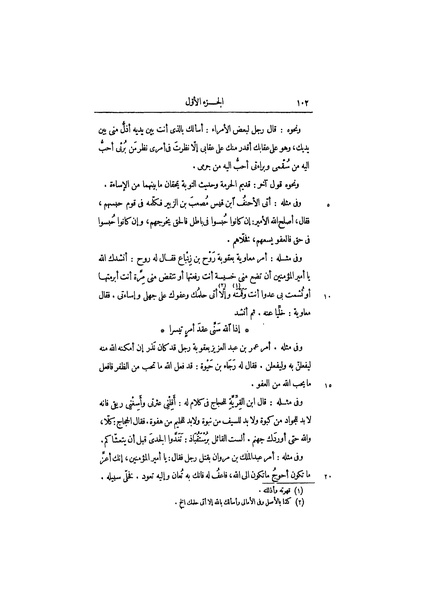 ١٠٢ الجزء الأوّل
ونحوه : قال رجل لبعض الأمراء : أسألك بالذى أنت بين يديه أذلُّ منى بين
يديك، وهو على عقابك أقدر منك على عقابى إلّا نظرتَ فى أمرى نظرَ مَن بُرئى أحبُّ
اليه من سُقْمى وبراءتى أحبُّ اليه من جرمى .
ونحوه قول آخر : قديم الحرمة وحديث التوبة يمحقان ما بينهما من الإساءة .
٥ وفى مثله : أتى الأحنفُ آبن قيس مُصعبَ بن الزبير فكلّمه فى قوم حبسهم ،
فقال، أصلح الله الأمير: إن كانوا حُبسوا فى باطل فالحق يخرجهم، وإن كانوا حُبسوا
فى حق فالعفو يسعهم، فخلّاهم .
وفى مثله : أمر معاوية بعقوبة رَوْح بن زِنْباع فقال له روح : أنشدك الله
يا أمير المؤمنين أن تضع منى خسيسة أنت رفعتها أو تنقض منى مِرّة أنت أبرمتها
١٠ أو تُشمت بى عدوا أنت وَقَمْتَه (١) وإلّا (٢) أتى حلمك وعفوك على جهلى وإساءتى . فقال
معاوية : خلِّيا عنه . ثم أنشد
* إذا اللهُ سَنَّى عقدَ أمرٍ تيسرا *
وفى مثله : أمر عمر بن عبد العزيز بعقوبة رجل قد كان نذر إن أمكنه الله منه
ليفعلن به وليفعلن . فقال له رَجاء بن حَيْوة : قد فعل الله ما تحب من الظفر فافعل
١٥ ما يحب الله من العفو .
وفى مثله : قال ابن القِرِّيَّة للحجاج فى كلام له : أَقِلْنِى عثرتى وأَسِغْنِى ريقى فانه
لا بد للجواد من كبوة ولا بد للسيف من نبوة ولا بد للحليم من هفوة. فقال الحجاج: كلّا،
والله حتى أوردَك جهنم . ألست القائل بُرُسْتَقُباذ : تَغَدَّوا الجَدْىَ قبل أن يتعشّاكم .
وفى مثله : أمر عبد الملك بن مروان بقتل رجل فقال: يا أمير المؤمنين، إنك أعزُّ
٢٠ ما تكون أحوجُ ما تكون الى الله، فاعفُ له فانك به تُعان واليه تعود . فخلّى سبيله .
(١) قهرته وأذلته .
(٢) كذا بالأصل وفى الأمالى وأسألك بالله إلا أتى حلمك الخ .